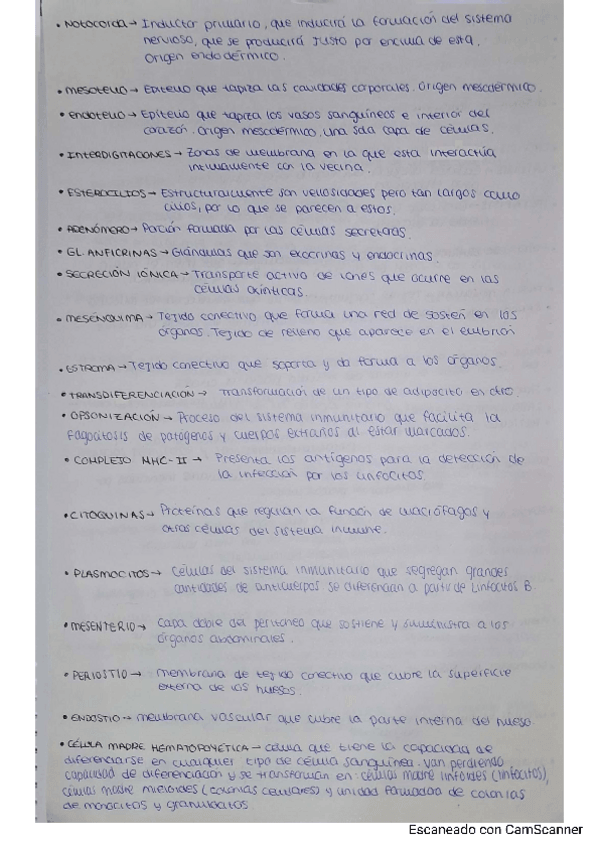 • NOTOCORDA → Inductor primario, que inducirá la formación del sistema
nervioso, que se producirá justo por encima de esta.
Origen endodérmico.
• MESOTELIO → Epitelio que tapiza las cavidades corporales. Origen mesodérmico.
• ENDOTELIO → Epitelio que tapiza los vasos sanguíneos e interior del
corazón. Origen mesodérmico. Una sola capa de células.
• INTERDIGITACIONES → Zonas de membrana en la que esta interactúa
íntimamente con la vecina.
• ESTEROCILIOS → Estructuralmente son vellosidades pero tan largos como
cilios, por lo que se parecen a estos.
• ADENÓMERO → Porción formada por las células secretoras.
• GL. ANFICRINAS → Glándulas que son exocrinas y endocrinas.
• SECRECIÓN IÓNICA → Transporte activo de iones que ocurre en las
células oxínticas.
• MESÉNQUIMA → Tejido conectivo que forma una red de sostén en los
órganos. Tejido de relleno que aparece en el embrión
• ESTROMA → Tejido conectivo que soporta y da forma a los órganos.
• TRANSDIFERENCIACIÓN → Transformación de un tipo de adipocito en otro
• OPSONIZACIÓN → Proceso del sistema inmunitario que facilita la
fagocitosis de patógenos y cuerpos extraños al estar marcados.
• COMPLEJO MHC-II → Presenta los antígenos para la detección de
la infección por los linfocitos.
• CITOQUINAS → Proteínas que regulan la función de macrófagos y
otras células del sistema inmune.
• PLASMOCITOS → células del sistema inmunitario que segregan grandes
cantidades de anticuerpos se diferencian a partir de Linfocitos B.
• MESENTERIO → Capa doble del peritoneo que sostiene y suministra a los
órganos abdominales.
• PERIOSTIO → membrana de tejido conectivo que cubre la superficie
externa de los huesos.
• ENDOSTIO → membrana vascular que cubre la parte interna del hueso.
• CÉLULA MADRE HEMATOPOYÉTICA → célula que tiene la capacidad de
diferenciarse en cualquier tipo de célula sanguínea. Van perdiendo
capacidad de diferenciación y se transforman en: células madre linfoides (linfocitos),
células madre mieloides (colonias celulares) y unidad formadora de colonias
de monocitos y granulocitos.
Escaneado con CamScanner